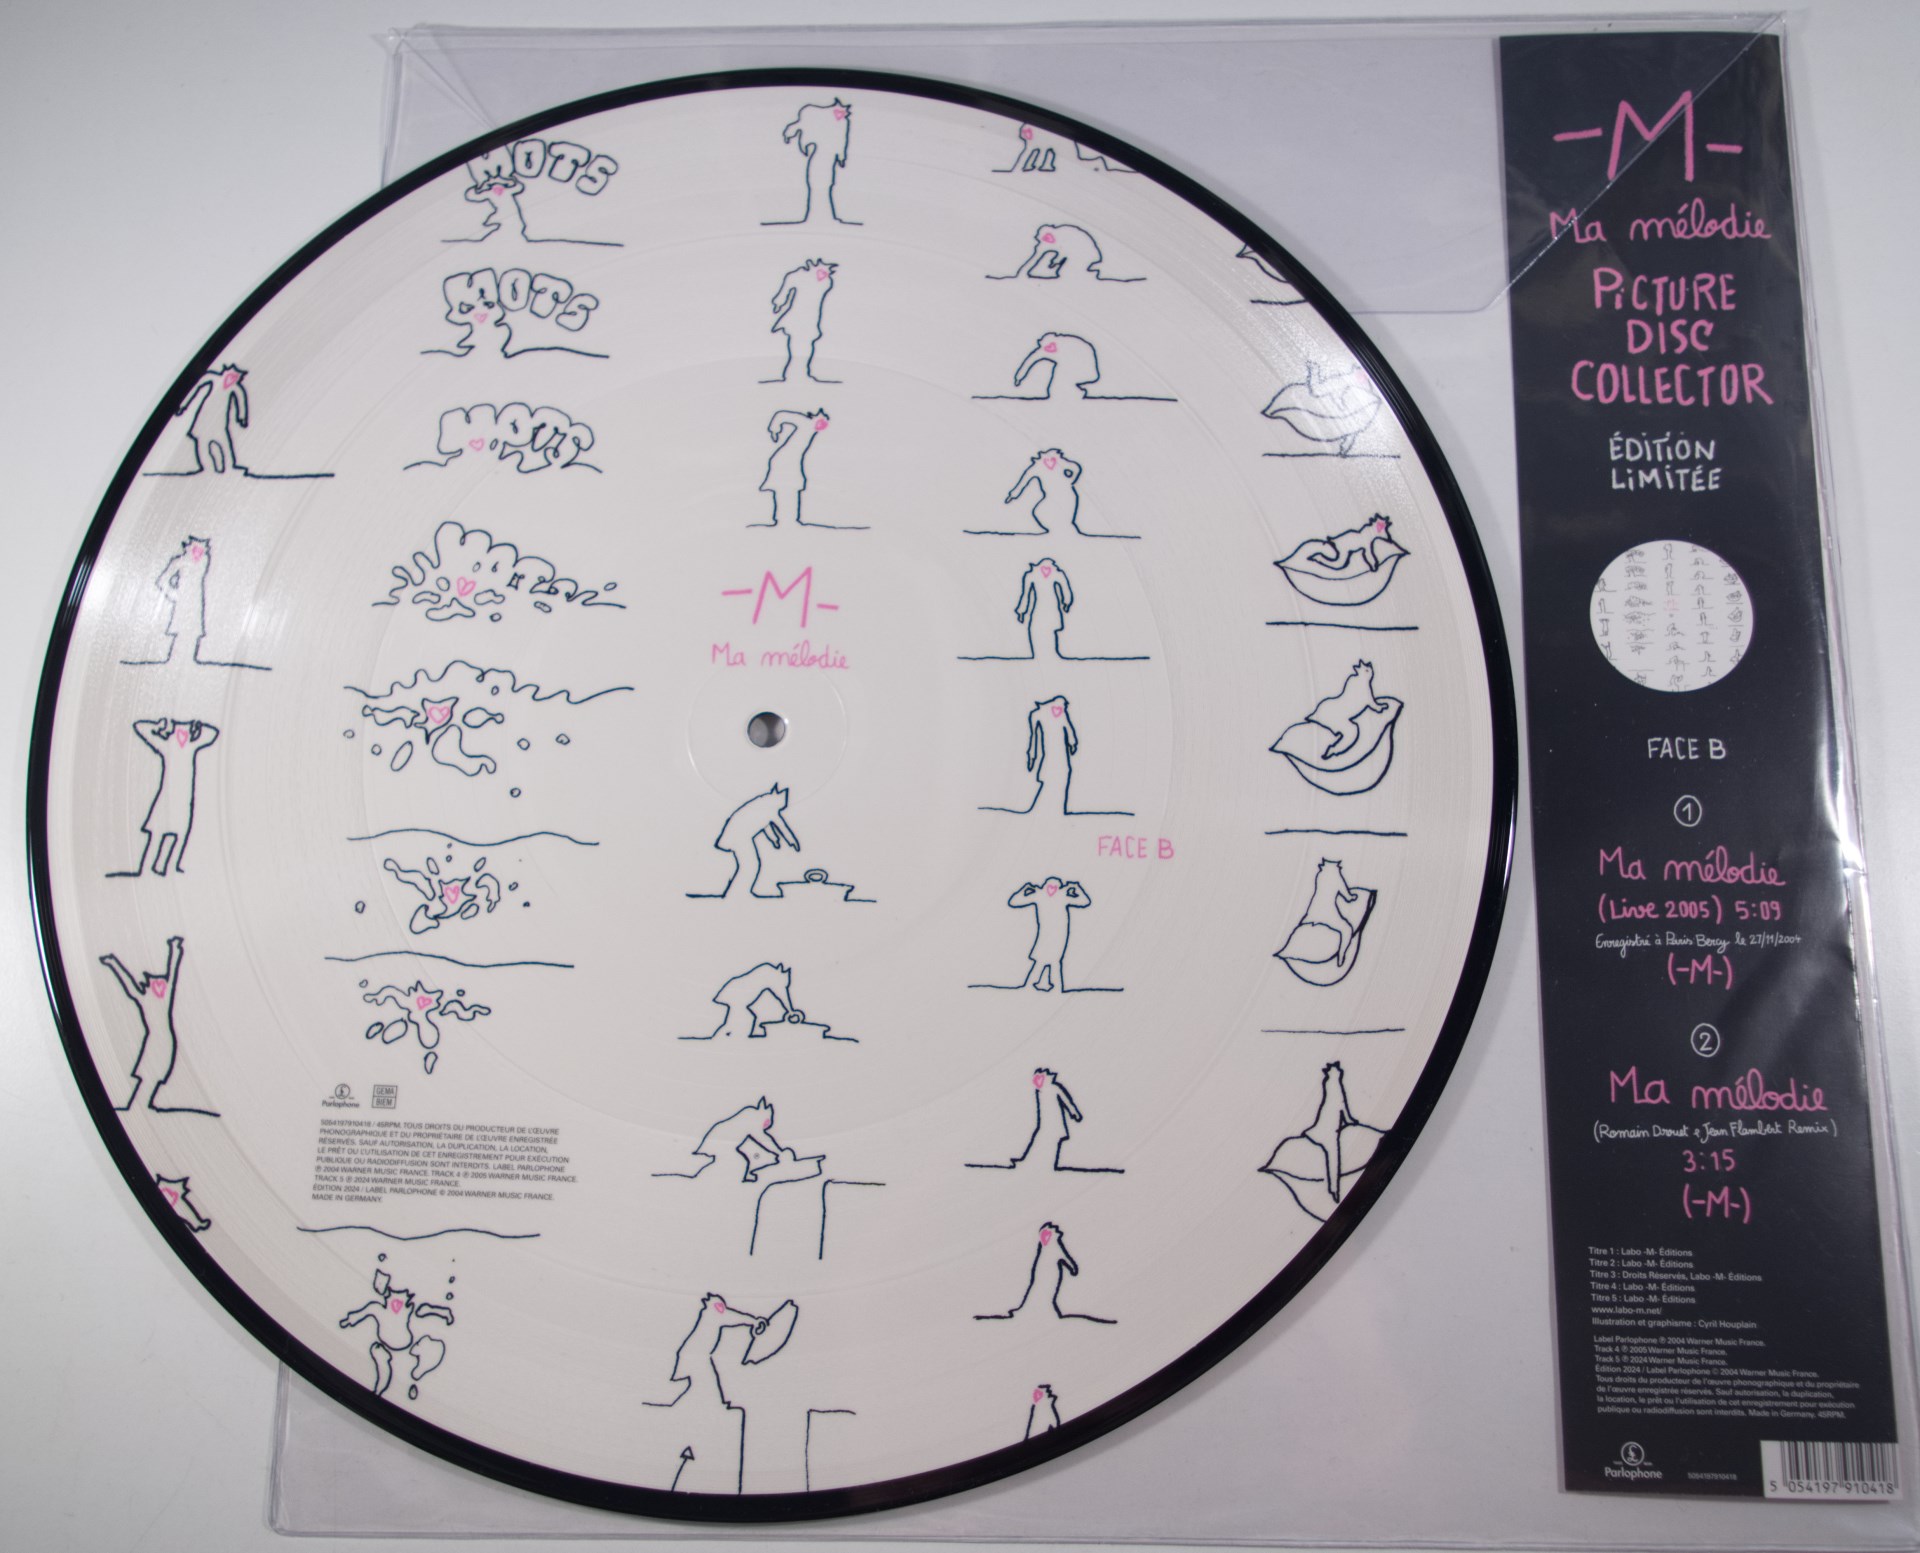 MOTS
MOTS
MOTS
-M-
Ma mélodie
FACE B
Parlophone
GEMA
BIEM
5054197910418 / 45RPM. TOUS DROITS DU PRODUCTEUR DE L'ŒUVRE
PHONOGRAPHIQUE ET DU PROPRIÉTAIRE DE L'ŒUVRE ENREGISTRÉE
RÉSERVÉS. SAUF AUTORISATION, LA DUPLICATION, LA LOCATION,
LE PRÊT OU L'UTILISATION DE CET ENREGISTREMENT POUR EXÉCUTION
PUBLIQUE OU RADIODIFFUSION SONT INTERDITS. LABEL PARLOPHONE
℗ 2004 WARNER MUSIC FRANCE. TRACK 4 ℗ 2005 WARNER MUSIC FRANCE.
TRACK 5 ℗ 2024 WARNER MUSIC FRANCE.
ÉDITION 2024 / LABEL PARLOPHONE © 2004 WARNER MUSIC FRANCE.
MADE IN GERMANY.
-M-
Ma mélodie
PiCTURE
DISC
COLLECTOR
ÉDiTiON
LiMiTÉE
FACE B
1
Ma mélodie
(Live 2005) 5:09
Enregistré à Paris Bercy le 27/11/2004
(-M-)
2
Ma mélodie
(Romain Drouet e Jean Flambert Remix)
3:15
(-M-)
Titre 1 : Labo -M- Éditions
Titre 2 : Labo -M- Éditions
Titre 3 : Droits Réservés, Labo -M- Éditions
Titre 4 : Labo -M- Éditions
Titre 5 : Labo -M- Éditions
www.labo-m.net/
Illustration et graphisme : Cyril Houplain
Label Parlophone ℗ 2004 Warner Music France.
Track 4 ℗ 2005 Warner Music France.
Track 5 ℗ 2024 Warner Music France.
Édition 2024 / Label Parlophone © 2004 Warner Music France.
Tous droits du producteur de l'œuvre phonographique et du propriétaire
de l'œuvre enregistrée réservés. Sauf autorisation, la duplication,
la location, le prêt ou l'utilisation de cet enregistrement pour exécution
publique ou radiodiffusion sont interdits. Made in Germany. 45RPM.
Parlophone
5054197910418
5 054197 910418